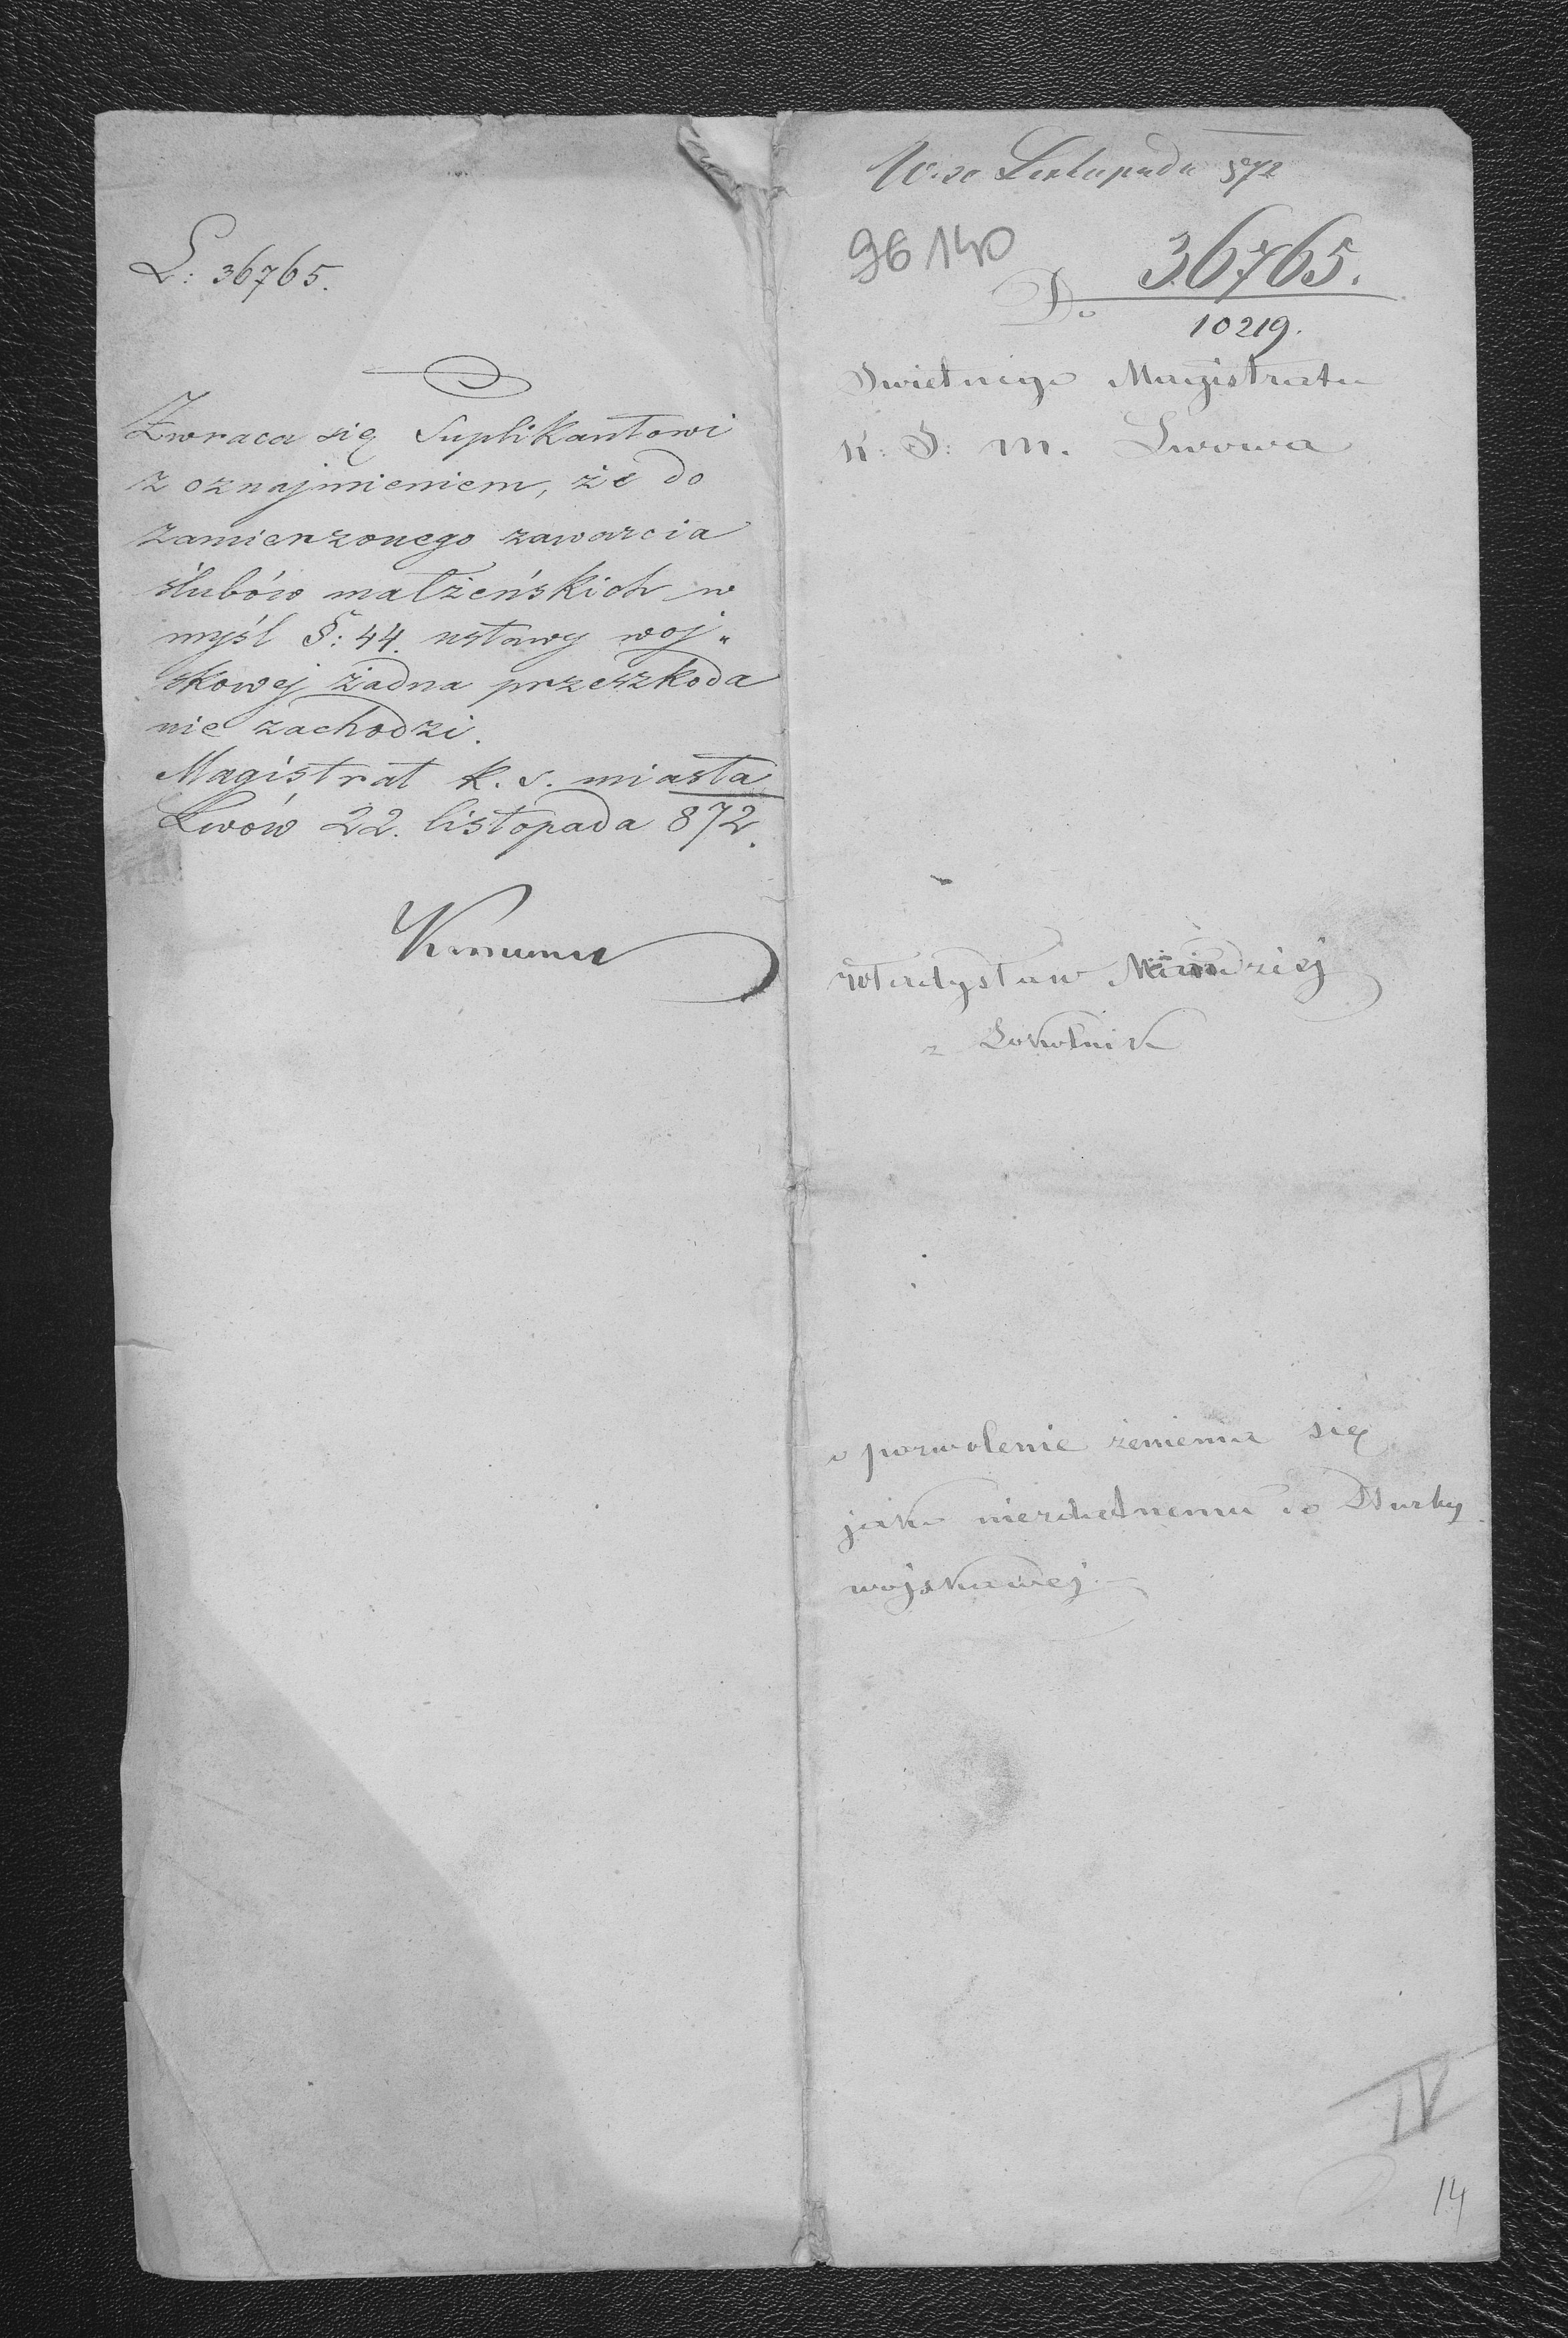 L: 36765.
Zwraca się Suplikantowi
z oznajmieniem, że do
zamierzonego zawarcia
ślubów małżeńskich w
myśl §: 44. ustawy woj„
skowej żadna przeszkoda
nie zachodzi.
Magistrat k. s. miasta
Lwów 22. listopada 872.
Listopada 872
96140
36765.
Do
10219.
Swietnego Magistratu
K: S: m. Lwowa
Władysław
z Sokolnik
o pozwolenie żenienia się
jako niezdatnemu do służby
wojskowej
IV
14